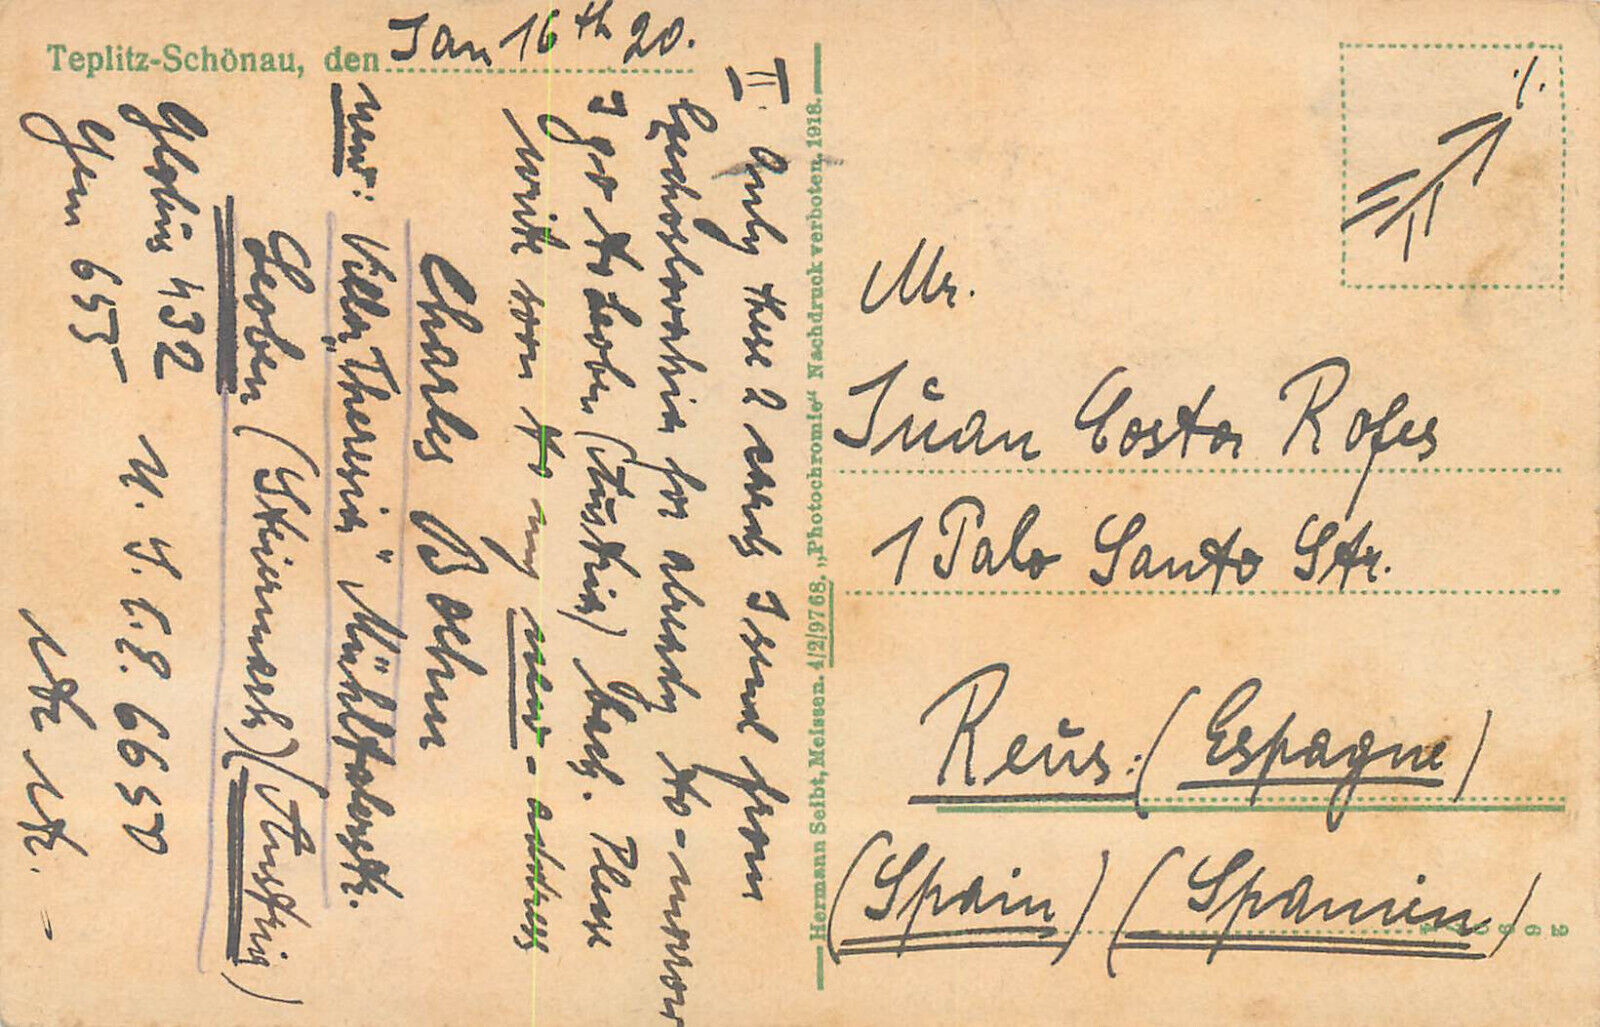 Teplitz-Schönau, den Jan 16th 20.
II. Only these 2 cards I send from
Czechoslovakia for already to-morrow
I go to Leoben (Austria) back. Please
write soon to my new-adress
Charles Boehm
new: Villa "Theresia" Mühltalerstr.
Leoben (Steiermark) (Austria)
Globus 432
Gem 655
U. Y. C. E. 6650
etc etc. -
Hermann Seibt, Meissen. 4/2/9768. „Photochromie" Nachdruck verboten, 1918.
Mr.
Juan Costa Rofes
1 Palo Santo Str.
Reus: (Espagne)
(Spain) (Spanien)